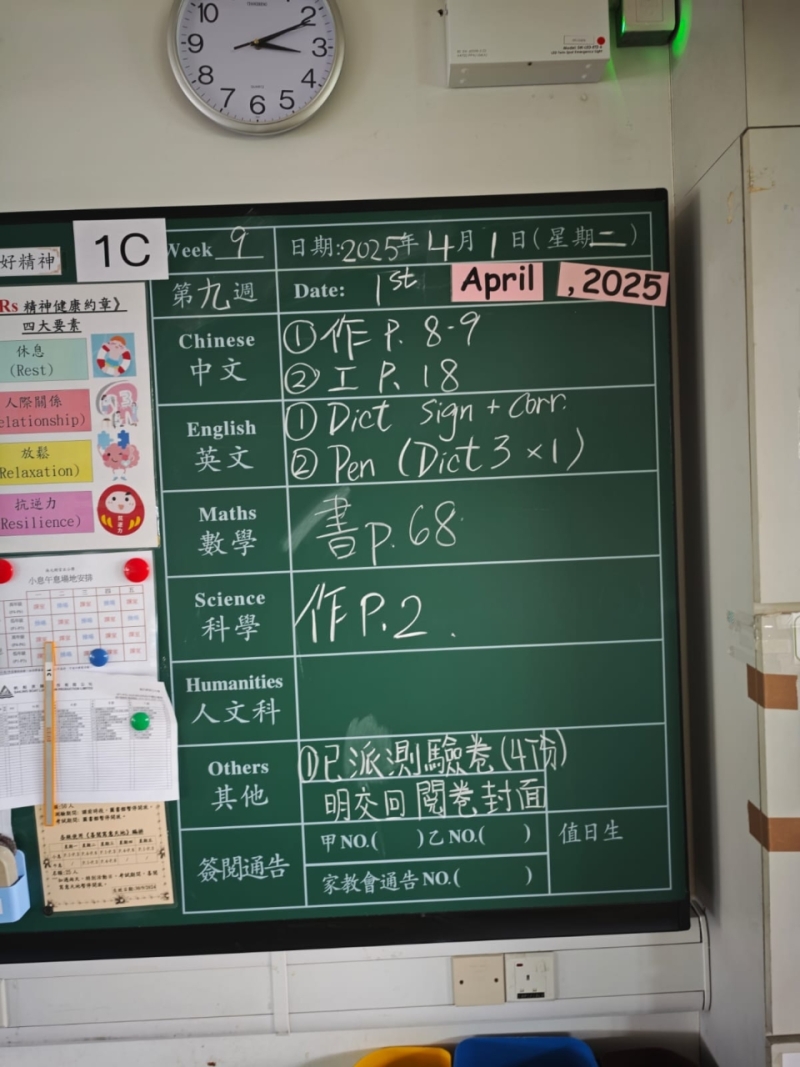 10
2
9
3
8
4
7
6
5
好精神
1C
Week 9
日期:2025年4月1日(星期二)
Rs 精神健康約章》
四大要素
第九週
Date: 1st April , 2025
休息
(Rest)
人際關係
elationship)
放鬆
Relaxation)
抗逆力
Resilience)
Chinese
中文
①作 P. 8-9
②工 P. 18
English
英文
①Dict sign + Corr.
②Pen (Dict 3 ×1)
Maths
數學
書 p. 68
Science
科學
作 P. 2.
Humanities
人文科
Others
其他
①已派測驗卷(4項)
明交回閱卷封面
簽閱通告
甲 NO.( )乙 NO.( )
家教會通告 NO.( )
值日生
小息午息場地安排